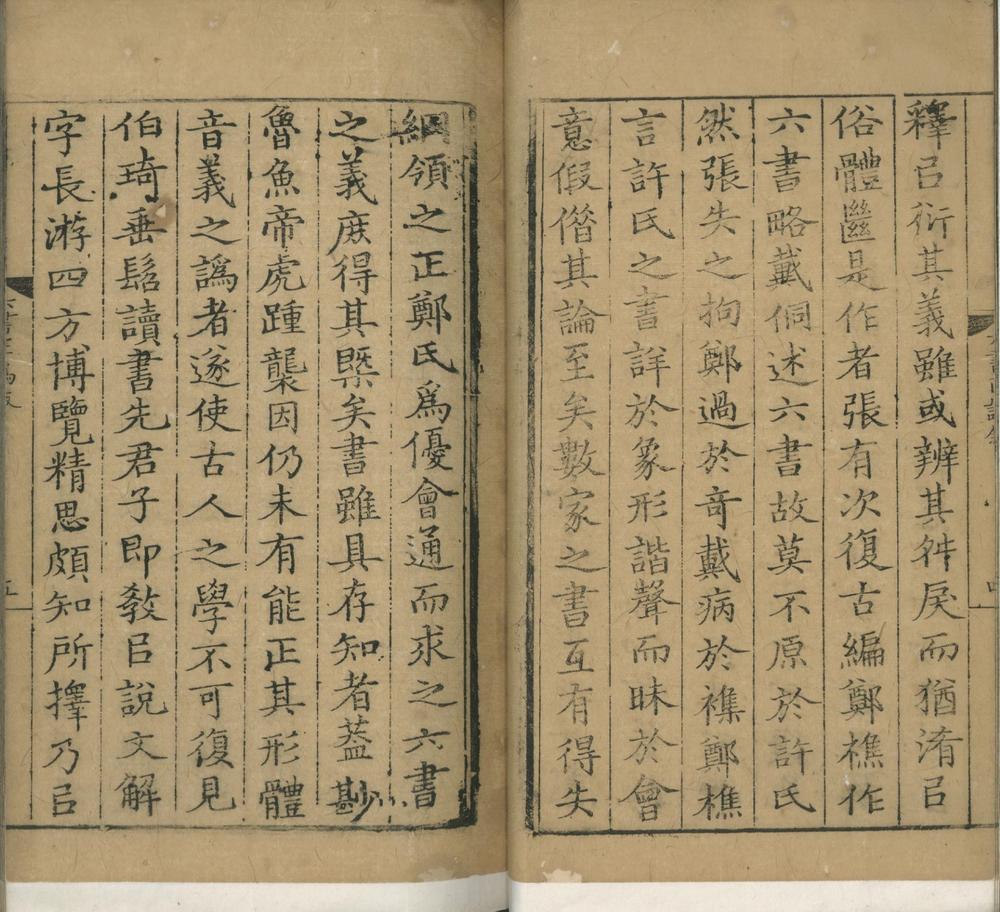 釋㠯衍其義雖或辨其舛戾而猶淆㠯
俗體繇是作者張有次復古編鄭樵作
六書略戴侗述六書故莫不原於許氏
然張失之拘鄭過於奇戴病於襍鄭樵
言許氏之書詳於象形諧聲而昧於會
意假僣其論至矣數家之書互有得失
綱領之正鄭氏爲優會通而求之六書
之義庶得其槩矣書雖具存知者葢尠
魯魚帝虎踵襲因仍未有能正其形體
音義之譌者遂使古人之學不可復見
伯琦垂髫讀書先君子即敎㠯說文解
字長游四方博覽精思頗知所擇乃㠯
五